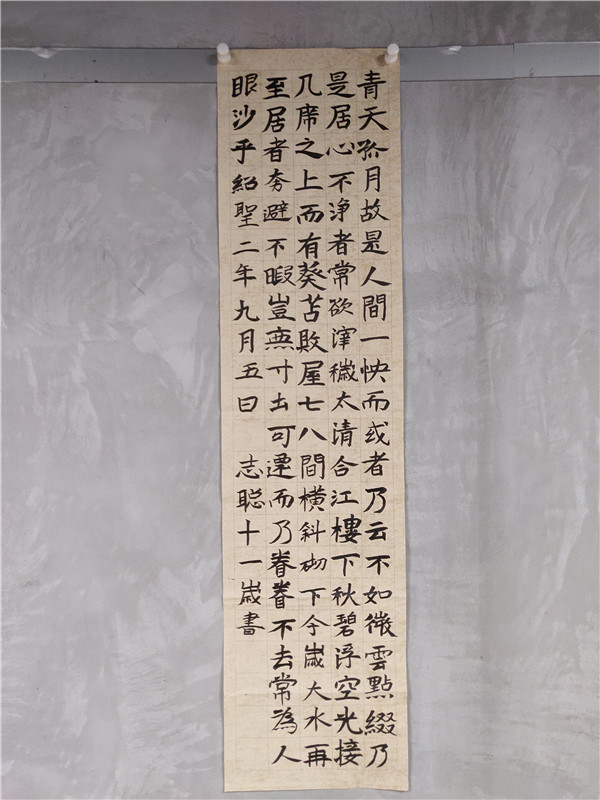 青天孤月故是人間一快而或者乃云不如微雲點綴乃
是居心不淨者常欲滓穢太清合江樓下秋碧浮空光接
几席之上而有葵苫敗屋七八間橫斜砌下今歲大水再
至居者奔避不暇豈無寸土可遷而乃眷眷不去常為人
眼沙乎紹聖二年九月五日 志聪十一歲書